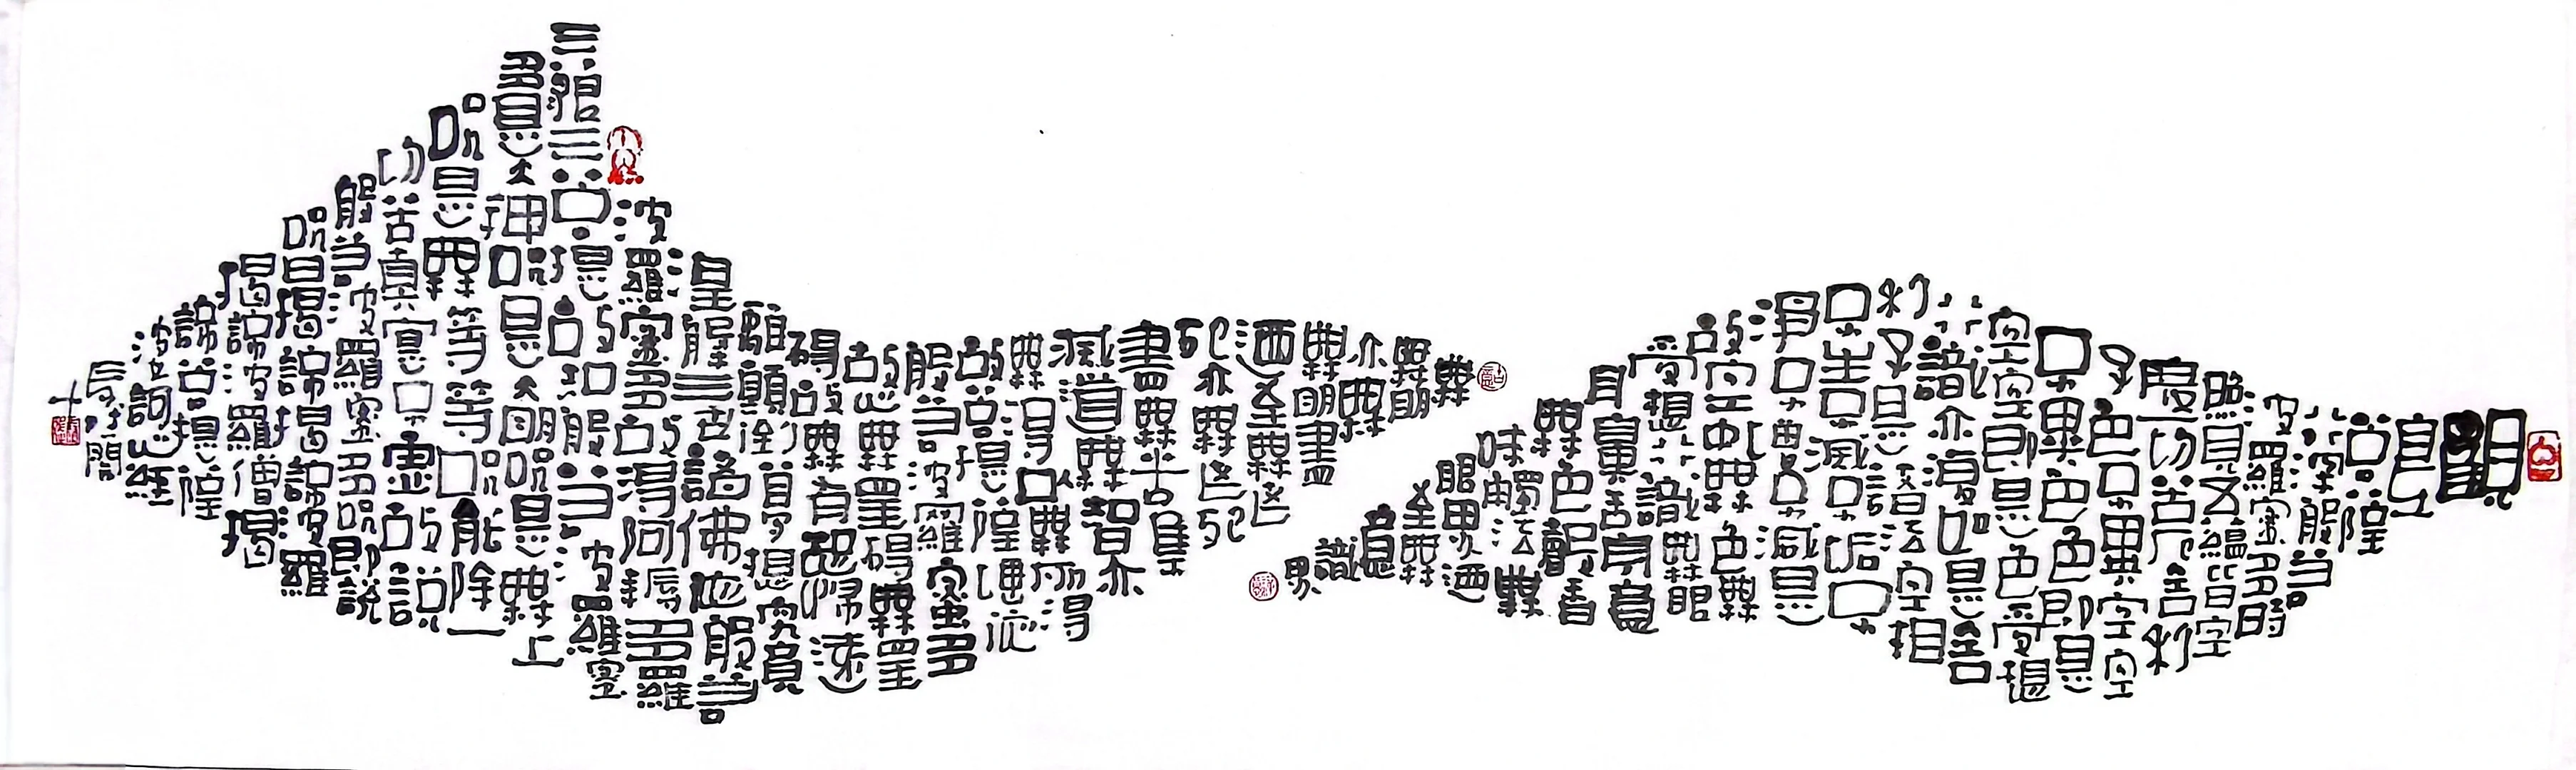 觀
自在
菩薩
行深般若
波羅蜜多時
照見五蘊皆空
度一切苦厄舍利
子色不異空空
不異色色即是
空空即是色受想
行識亦復如是舍
利子是諸法空相
不生不滅不垢不
淨不增不減是
故空中無色無
受想行識無眼
耳鼻舌身意
無色聲香
味觸法無
眼界乃
至無
意
識
界
無
無明
亦無
無明盡
乃至無老
死亦無老死
盡無苦集
滅道無智亦
無得以無所得
故菩提薩埵依
般若波羅蜜多
故心無罣礙無罣
礙故無有恐怖遠
離顛倒夢想究竟
涅槃三世諸佛依般若
波羅蜜多故得阿耨多羅
三藐三菩提故知般若波羅蜜
多是大神咒是大明咒是無上
咒是無等等咒能除一
切苦真實不虛故說
般若波羅蜜多咒即說
咒曰揭諦揭諦波羅
揭諦波羅僧揭
諦菩提薩
婆訶心經